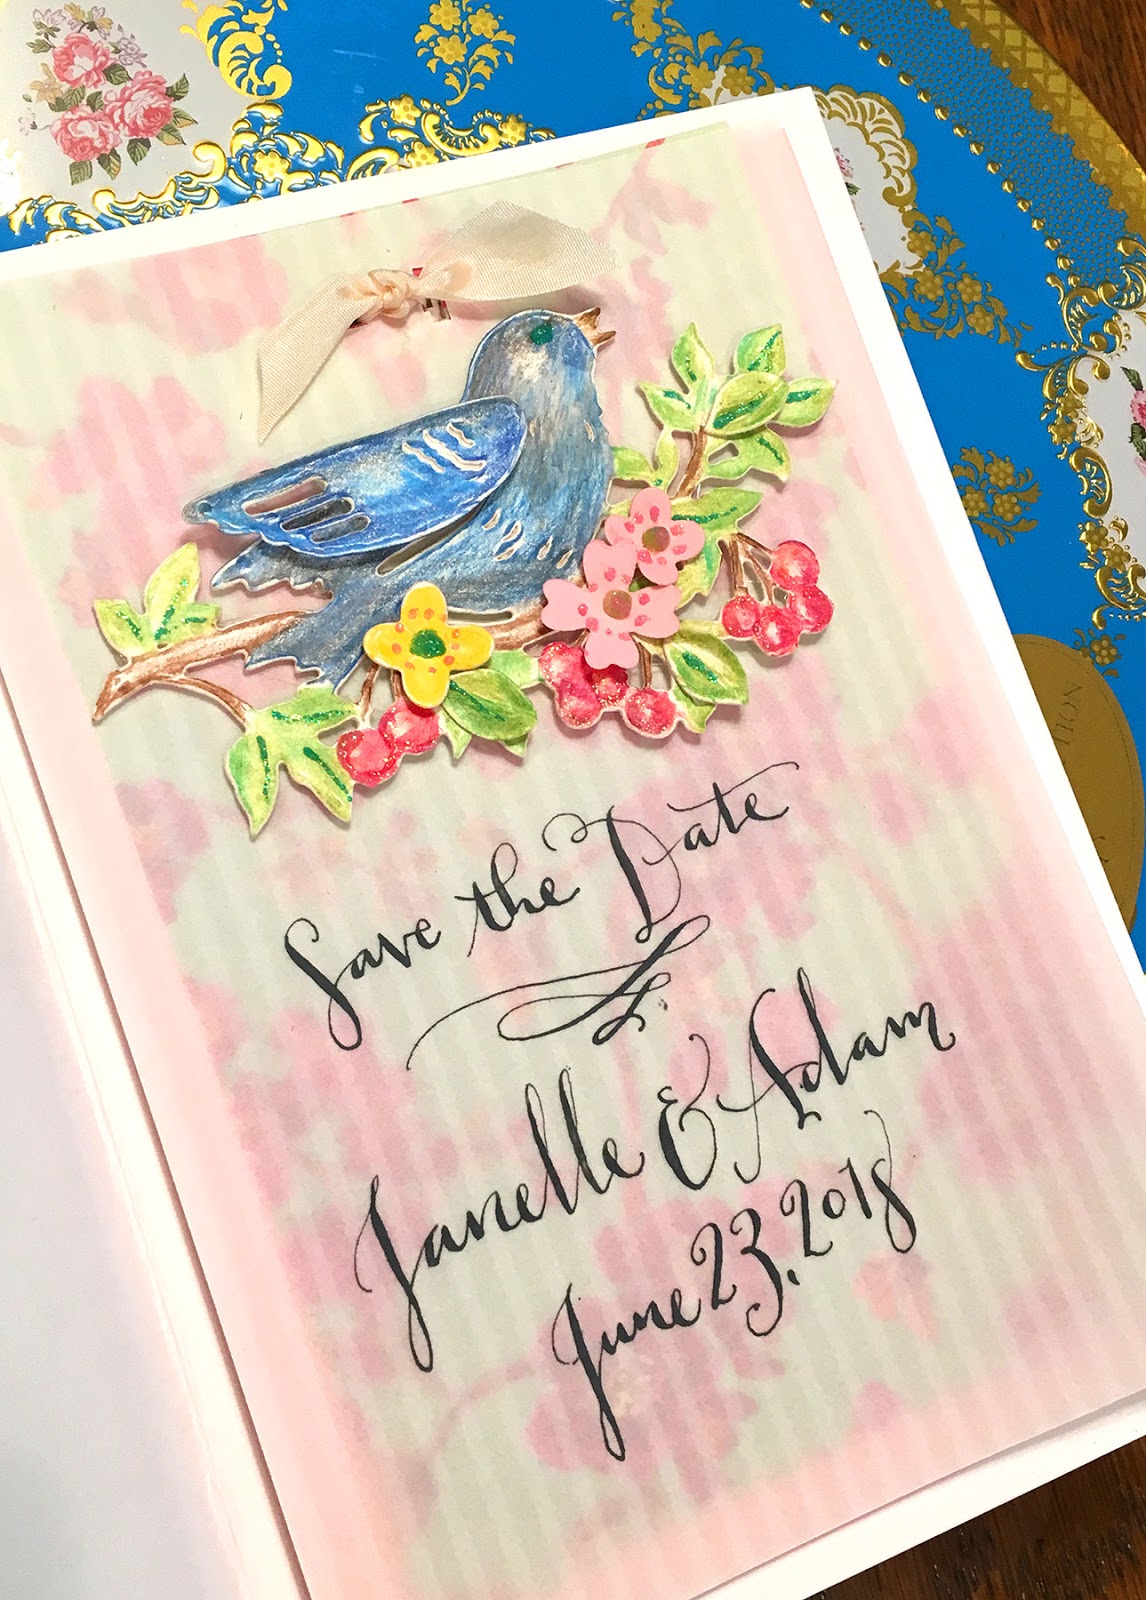 Save the Date
Janelle & Adam
June 23, 2018